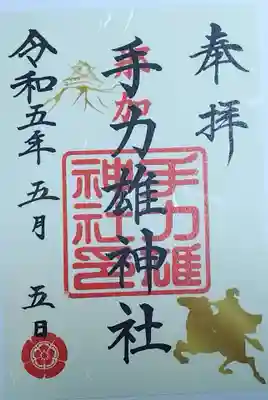 奉拝
那加
手力雄神社
手力雄
神社印
令和五年五月五日